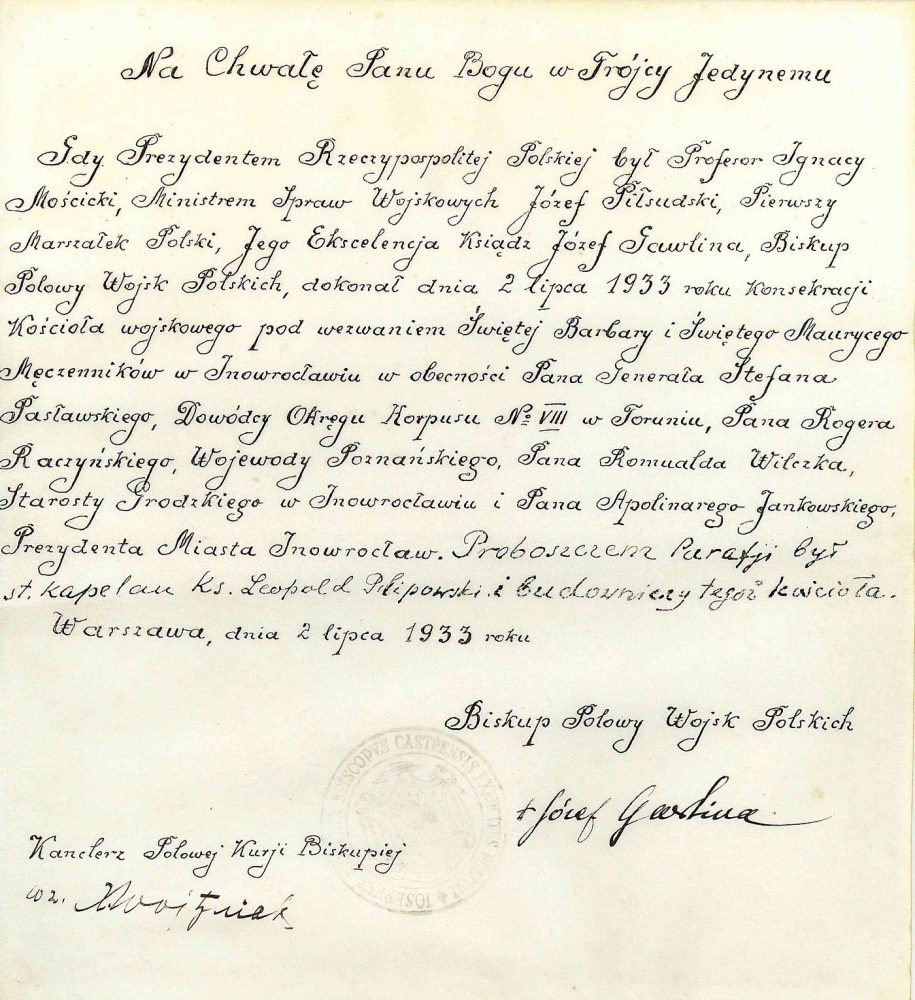 Na Chwałę Panu Bogu w Trójcy Jedynemu
Gdy Prezydentem Rzeczypospolitej Polskiej był Profesor Ignacy
Mościcki, Ministrem Spraw Wojskowych Józef Piłsudski, Pierwszy
Marszałek Polski, Jego Ekscelencja Ksiądz Józef Gawlina, Biskup
Polowy Wojsk Polskich, dokonał dnia 2 lipca 1933 roku konsekracji
Kościoła wojskowego pod wezwaniem Świętej Barbary i Świętego Maurycego
Męczenników w Inowrocławiu w obecności Pana Generała Stefana
Pasławskiego, Dowódcy Okręgu Korpusu № VIII w Toruniu, Pana Rogera
Raczyńskiego, Wojewody Poznańskiego, Pana Romualda Wilczka,
Starosty Grodzkiego w Inowrocławiu i Pana Apolinarego Jankowskiego,
Prezydenta Miasta Inowrocław. Proboszczem Parafji był
st. kapelan ks. Leopold Pilipowski i budowniczy tegoż kościoła.
Warszawa, dnia 2 lipca 1933 roku
Biskup Polowy Wojsk Polskich
EPISCOPUS CASTRENSIS
+ Józef Gawlina
Kanclerz Polowej Kurji Biskupiej
wz.